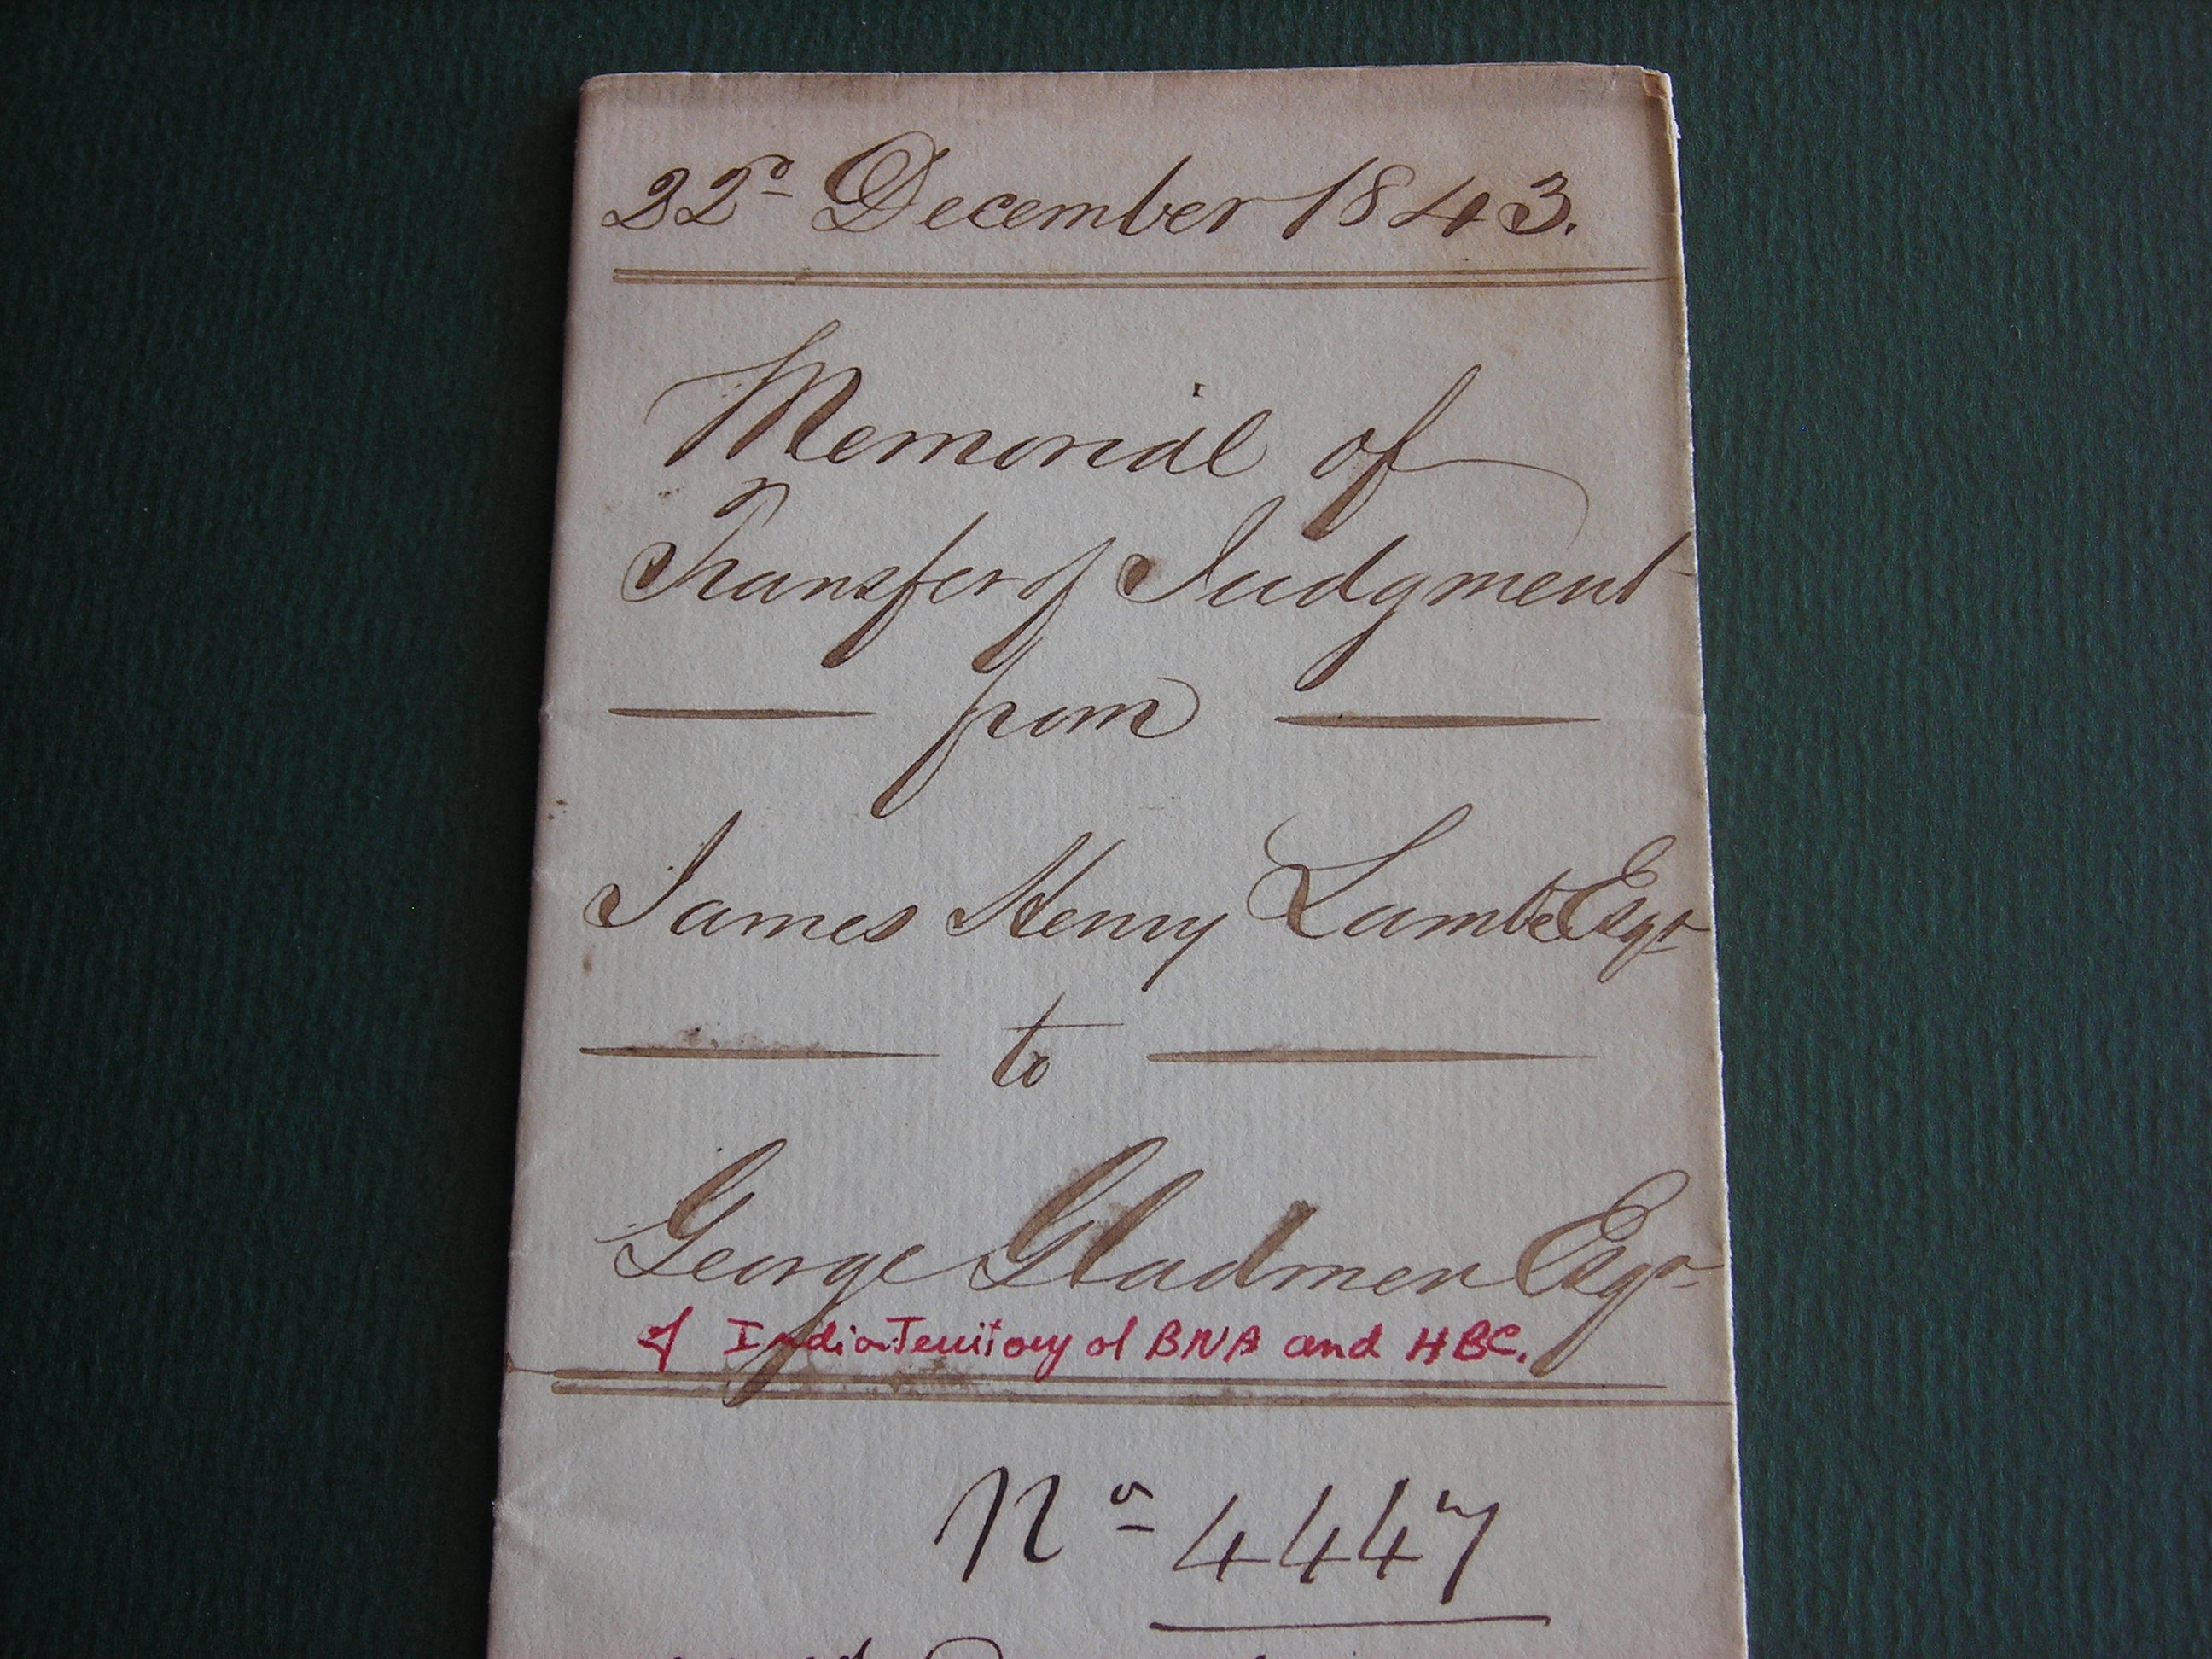 22ᵈ December 1843.
Memorial of
Transfer of Judgment
from
James Henry Lambe Esqr
to
George Gladmen Esqr
of India Territory of BNA and HBC.
No 4447